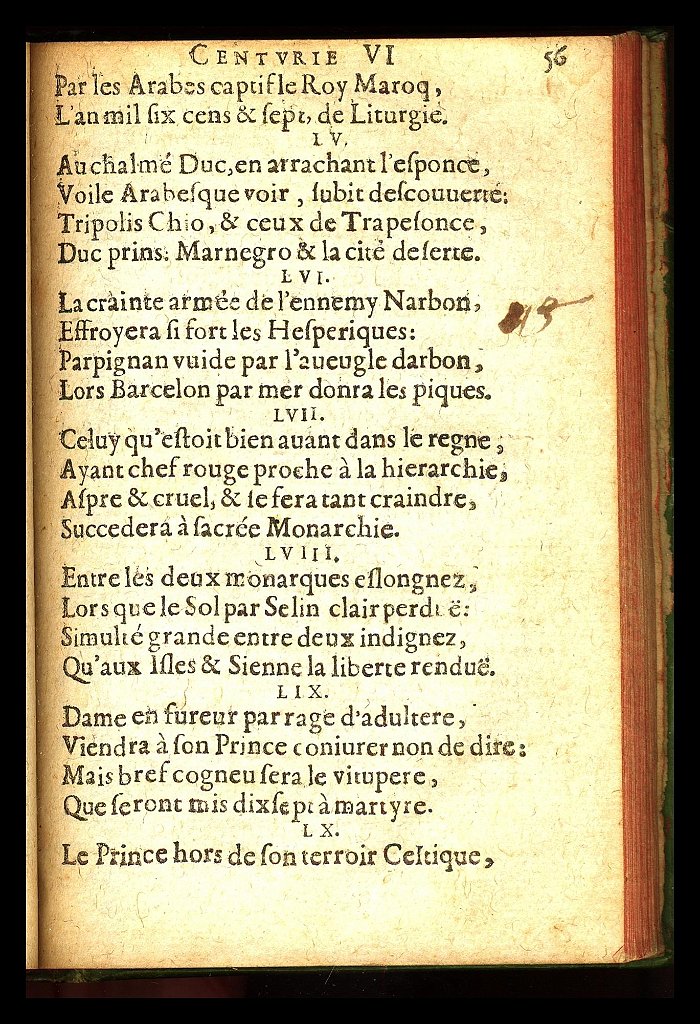 CENTVRIE VI 56
Par les Arabes captif le Roy Maroq,
L'an mil ſix cens & ſept, de Liturgie.
LV.
Au chalmé Duc, en arrachant l'eſponce,
Voile Arabeſque voir, ſubit deſcouuerte:
Tripolis Chio, & ceux de Trapeſonce,
Duc prins: Marnegro & la cité deſerte.
LVI.
La crainte armée de l'ennemy Narbon,
Effroyera ſi fort les Heſperiques:
Parpignan vuide par l'aueugle darbon,
Lors Barcelon par mer donra les piques.
LVII.
Celuy qu'eſtoit bien auant dans le regne,
Ayant chef rouge proche à la hierarchie,
Aſpre & cruel, & ſe fera tant craindre,
Succedera à ſacrée Monarchie.
LVIII.
Entre les deux monarques eſlongnez,
Lors que le Sol par Selin clair perduë:
Simulté grande entre deux indignez,
Qu'aux Iſles & Sienne la liberte renduë.
LIX.
Dame en fureur par rage d'adultere,
Viendra à ſon Prince coniurer non de dire:
Mais bref cogneu ſera le vitupere,
Que ſeront mis dixſept à martyre.
LX.
Le Prince hors de ſon terroir Celtique,